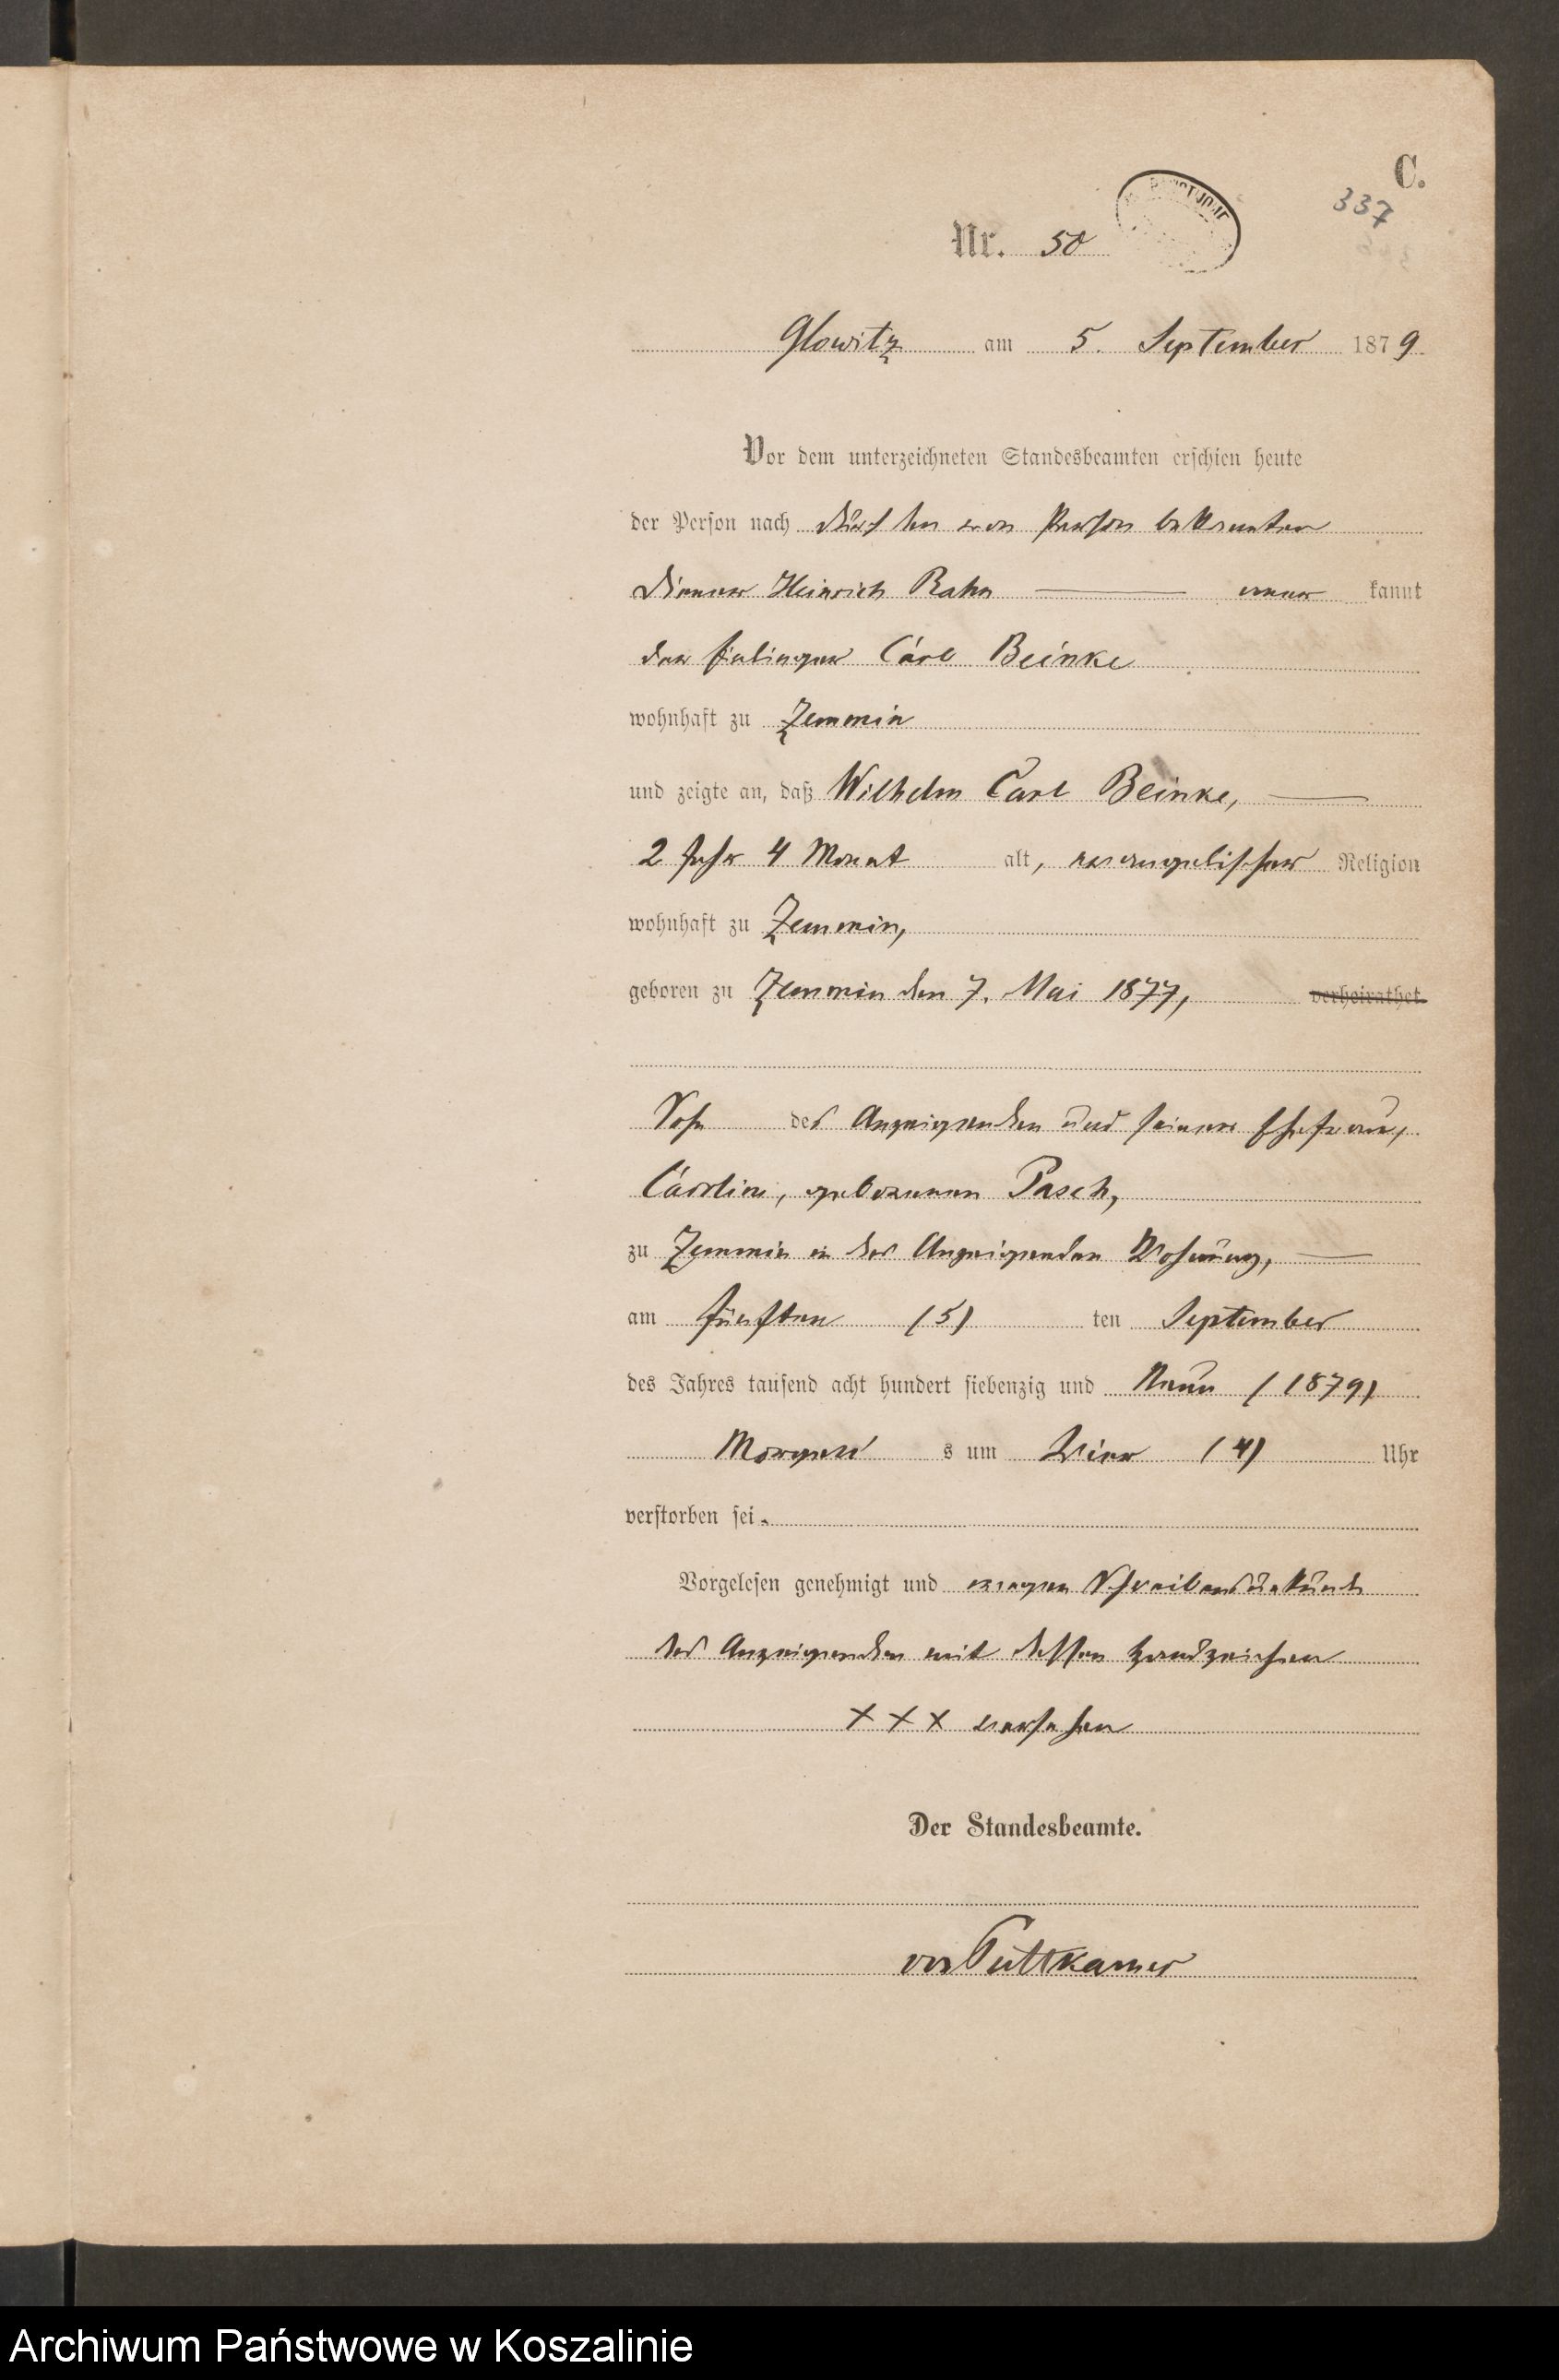 C.
337
Nr. 50
Glowitz am 5. September 1879
Vor dem unterzeichneten Standesbeamten erschien heute
der Person nach durch den von Person bekannten
Diener Heinrich Rahn kannt
der Carl Beinke
wohnhaft zu Zemmin
und zeigte an, daß Wilhelm Carl Beinke,
2 Jahr 4 Monat alt, evangelischer Religion
wohnhaft zu Zemmin,
geboren zu Zemmin den 7. Mai 1877, verheirathet
Sohn des Anzeigenden und seiner Ehefrau,
Caroline, geborenen Pasch,
zu Zemmin in des Anzeigenden Wohnung,
am fünften (5) ten September
des Jahres tausend acht hundert siebenzig und Neun (1879)
Morgens s um Vier (4) Uhr
verstorben sei.
Vorgelesen genehmigt und wegen Schreibensunkunde
des Anzeigenden mit dessen Handzeichen
XXX versehen
Der Standesbeamte.
von Puttkamer
Archiwum Państwowe w Koszalinie